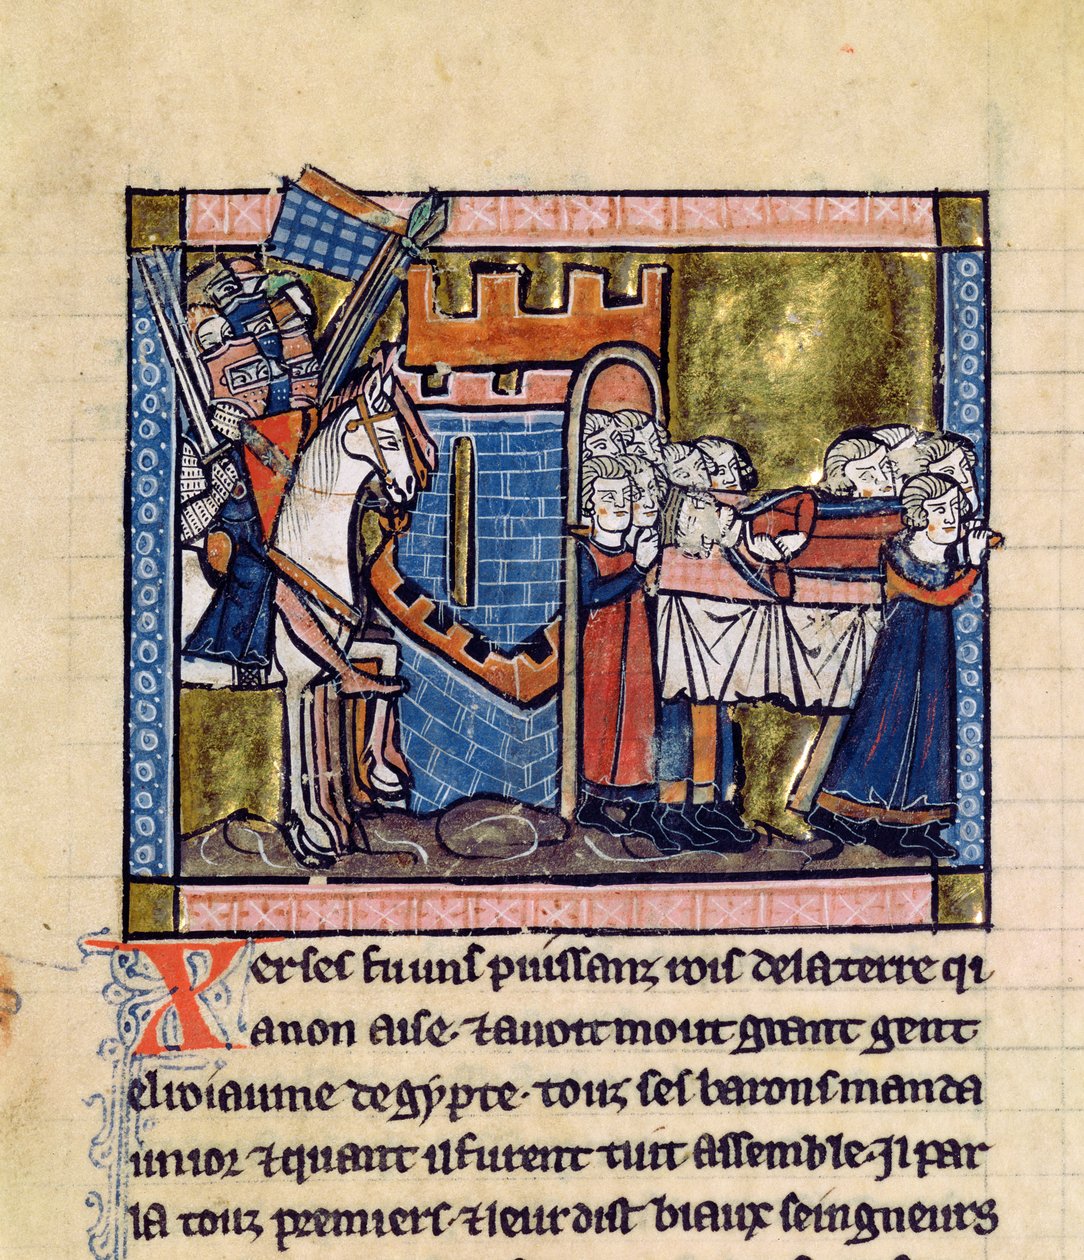 Xerses fu uns puissanz rois de la terre qi
a non aise · ⁊ avoit mout grant gent
el roiaume degypte · touz ses barons manda
un ior ⁊ quant il furent tuit assemble · Il par
la touz premiers · ⁊ leur dist biaux seingneurs